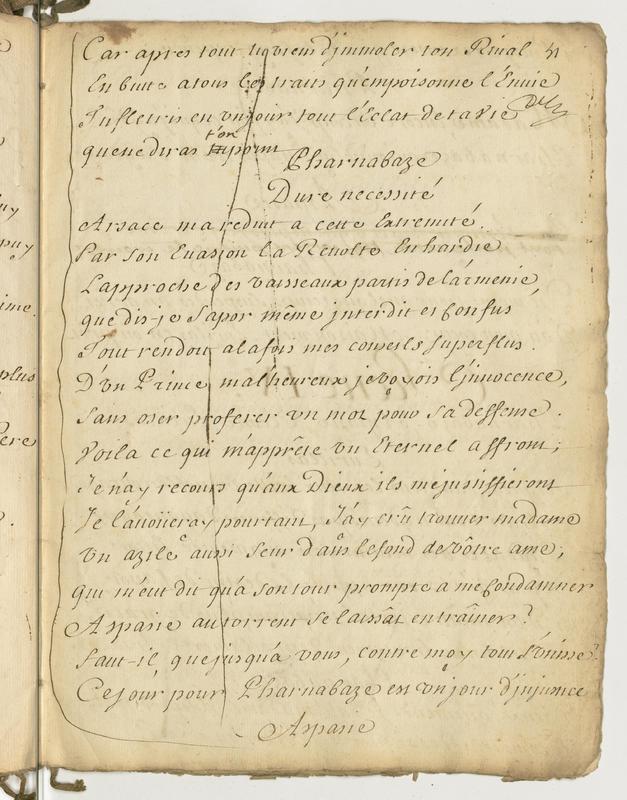 Car apres tout tu viens d'jmmoler ton Rival
En butte a tous les traits qu'empoisonne l'Enuie
Tu fletris en vn jour tout l'Eclat de ta vie
que ne diras t'on point
Pharnabaze
Dure necessité
Arsace ma reduit a cette Extremité.
Par son Euasion la Reuolte Enhardie
L'approche des vaisseaux partis de l'armenie,
que dis-je Sapor même interdit et Confus
Tout rendoit a la fois mes conseils superflus.
D'vn Prince malheureux je voyois l'jnnocence,
sans oser proferer vn mot pour sa deffense.
Voila ce qui m'apprête vn Eternel affront;
Je n'ay recours qu'aux Dieux ils me justiffieront
Je l'auoüeray pourtant, J'ay crû trouuer madame
vn azile aussi seur dans le fond de vôtre ame;
Qui m'eut dit qu'a son tour prompte a me Condamner
Aspasie au torrent se laissât entraîner?
faut-il que jusqu'a vous, contre moy tout s'vnisse?
Ce jour pour Pharnabaze est vn jour d'injustice
Aspasie
uy
puy
ime.
plus
ere